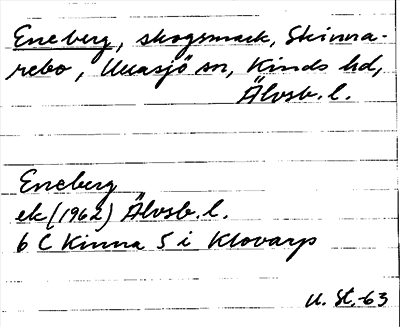 Eneberg, skogsmark, Skinna-
rebo, Ullasjö sn, Kinds hd,
Älvsb. l.
Eneberg
ek (1962) Älvsb. l.
6 C Kinna 5 i Klovarp
U. St. -63